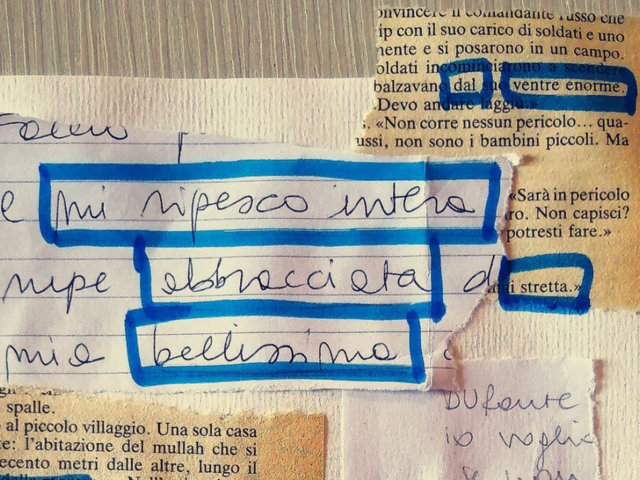 onvincere il comandante russo che
ip con il suo carico di soldati e uno
mente e si posarono in un campo.
oldati incominciarono a scendere
balzavano dal suo ventre enorme.
Devo andare laggiù.»
s. «Non corre nessun pericolo... qua-
ussi, non sono i bambini piccoli. Ma
«Sarà in pericolo
ro. Non capisci?
potresti fare.»
i stretta.»
e mi ripesco intera
abbracciata d
mia bellissima
spalle.
al piccolo villaggio. Una sola casa
te: l'abitazione del mullah che si
ecento metri dalle altre, lungo il
Durante
io voglio